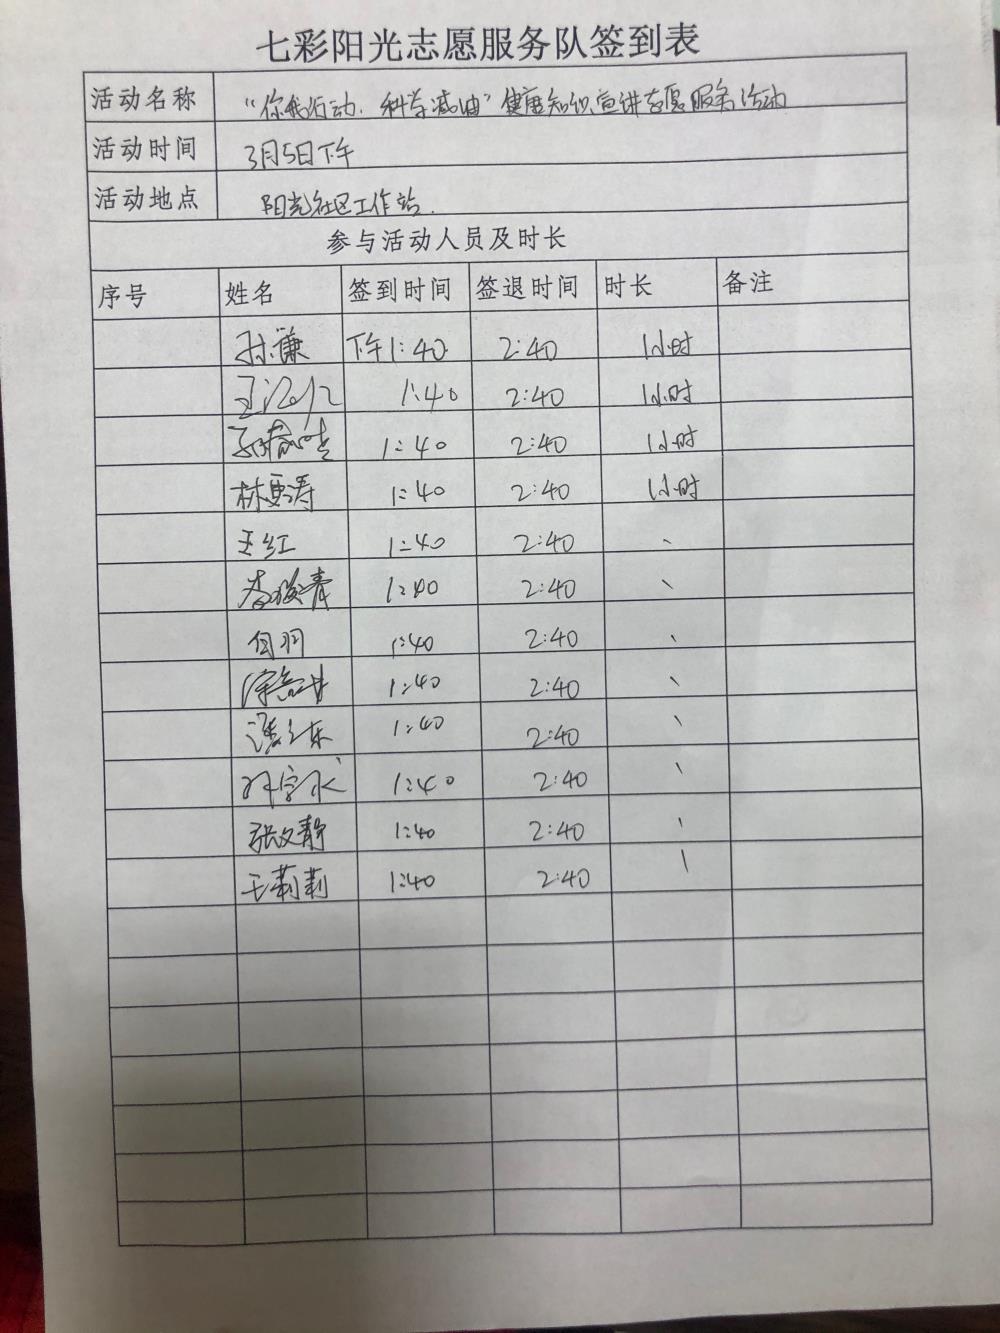 七彩阳光志愿服务队签到表
活动名称 "你我行动、科学减油"健康知识宣讲志愿服务活动
活动时间 3月5日下午
活动地点 阳光社区工作站.
参与活动人员及时长
序号 姓名 签到时间 签退时间 时长 备注
孙谦 下午1:40 2:40 1小时
1:40 2:40 1小时
1:40 2:40 1小时
林更涛 1:40 2:40 1小时
王红 1:40 2:40 、
1:40 2:40 、
1:40 2:40 、
1:40 2:40 、
1:40 2:40 、
1:40 2:40 、
张文静 1:40 2:40 、
王莉莉 1:40 2:40 、